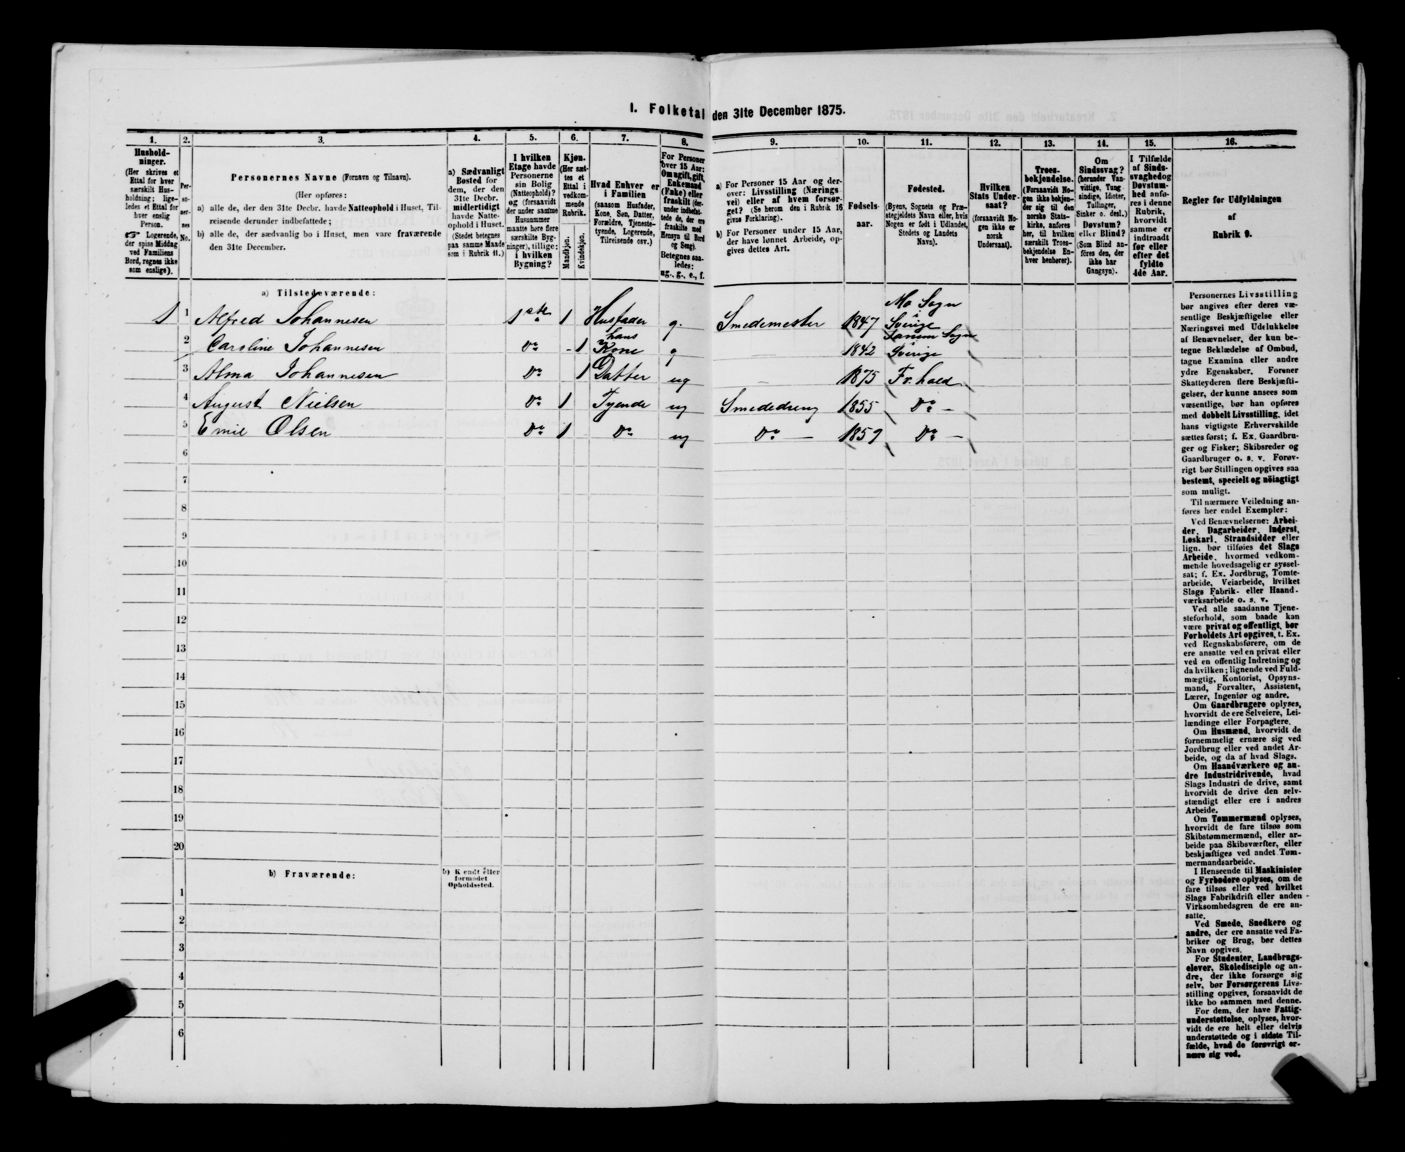 I. Folketal den 31te December 1875.
1.
Hushold-
ninger.
(Her skrives et
Ettal for hver
særskilt Hus-
holdning; lige-
ledes et Ettal for
hver enslig
Person.
☞ Logerende,
der spise Middag
ved Familiens
Bord, regnes ikke
som enslige).
2.
Per-
so-
ner-
nes
No.
3.
Personernes Navne (Fornavn og Tilnavn).
(Her opføres:
a) alle de, der den 31te Decbr. havde Natteophold i Huset, Til-
reisende derunder indbefattede;
b) alle de, der sædvanlig bo i Huset, men vare fraværende
den 31te December.
4.
a) Sædvanligt
Bosted for
dem, der den
31te Decbr.
midlertidigt
havde Natte-
ophold i Huset.
(Stedet betegnes
paa samme Maade
som i Rubrik 11.)
5.
I hvilken
Etage havde
Personerne
sin Bolig
(Natteophold)?
og (forsaavidt
der under samme
Husnummer
maatte høre flere
særskilte Byg-
ninger), tillige:
i hvilken
Bygning?
6.
Kjøn.
(Her sæt-
tes et
Ettal i
vedkom-
mende
Rubrik.
Mandkjøn.
Kvindekjøn.
7.
Hvad Enhver er
i Familien
(saasom Husfader,
Kone, Søn, Datter,
Forældre, Tjeneste-
tyende, Logerende,
Tilreisende osv.)
8.
For Personer
over 15 Aar:
Om ugift, gift,
Enkemand
(Enke) eller
fraskilt (der-
under indbefat-
tede de, der ere
fraskilte med
Hensyn til Bord
og Seng).
Betegnes saa-
ledes:
ug., g., e., f.
9.
a) For Personer 15 Aar og der-
over: Livsstilling (Nærings-
vei) eller af hvem forsør-
get? (Se herom den i Rubrik 16
givne Forklaring).
b) For Personer under 15 Aar,
der have lønnet Arbeide, op-
gives dettes Art.
10.
Fødsels-
aar.
11.
Fødested.
(Byens, Sognets og Præ-
stegjeldets Navn eller, hvis
Nogen er født i Udlandet,
Stedets og Landets
Navn).
12.
Hvilken
Stats Under-
saat?
(forsaavidt No-
gen ikke er
norsk
Undersaat).
13.
Troes-
bekjendelse.
(Forsaavidt No-
gen ikke bekjen-
der sig til den
norske Stats-
kirke, anføres
her, til hvilken
særskilt Troes-
bekjendelse En-
hver henhører).
14.
Om
Sindssvag?
(herunder Van-
vittige, Tung
sindige, Idioter,
Tullinger,
Sinker o. desl.)
Døvstum?
eller Blind?
(Som Blind an-
føres den, der
ikke har
Gangsyn).
15.
I Tilfælde
af Sinds-
svaghed og
Døvstum-
hed anfø-
res i denne
Rubrik,
hvorvidt
samme er
indtraadt
før eller
efter det
fyldte
4de Aar.
16.
Regler for Udfyldningen
af
Rubrik 9.
a) Tilstedeværende:
1 1 Alfred Johannesen 1ste 1 Husfader g. Smedemester 1847 Mo Sogn Sverige
2 Caroline Johannesen Do 1 hans Kone g 1842 Sogn Sverige
3 Alma Johannesen Do 1 Datter ug — 1875 Fr.hald
4 August Nielsen Do 1 Tyende ug Smededreng 1855 Do —
5 Emil Olsen Do 1 Do ug Do — 1859 Do —
6
7
8
9
10
11
12
13
14
15
16
17
18
19
20
b) Fraværende:
b) Kjendt eller
formodet
Opholdssted.
1
2
3
4
5
6
Personernes Livsstilling
bør angives efter deres væ-
sentlige Beskjæftigelse eller
Næringsvei med Udelukkelse
af Benævnelser, der kun be-
tegne Beklædelse af Ombud,
tagne Examina eller andre
ydre Egenskaber. Forener
Skatteyderen flere Beskjæfti-
gelser, der kunne ansees som
væsentlige, bør han opføres
med dobbelt Livsstilling, idet
hans vigtigste Erhvervskilde
sættes først; f. Ex. Gaardbru-
ger og Fisker; Skibsreder og
Gaardbruger o. s. v. Forøv-
rigt bør Stillingen opgives saa
bestemt, specielt og nøiagtigt
som muligt.
Til nærmere Veiledning an-
føres her endel Exempler:
Ved Benævnelserne: Arbei-
der, Dagarbeider, Inderst,
Løskarl, Strandsidder eller
lign. bør tilføies det Slags
Arbeide, hvormed vedkom-
mende hovedsagelig er syssel-
sat; f. Ex. Jordbrug, Tomte-
arbeide, Veiarbeide, hvilket
Slags Fabrik- eller Haand-
værksarbeide o. s. v.
Ved alle saadanne Tjene-
steforhold, som baade kan
være privat og offentligt, bør
Forholdets Art opgives, f. Ex.
ved Regnskabsførere, om de
ere ansatte ved en privat eller
ved en offentlig Indretning og
da hvilken; lignende ved Fuld-
mægtig, Kontorist, Opsyns-
mand, Forvalter, Assistent,
Lærer, Ingeniør og andre.
Om Gaardbrugere oplyses,
hvorvidt de ere Selveiere, Lei-
lændinge eller Forpagtere.
Om Husmænd, hvorvidt de
fornemmelig ernære sig ved
Jordbrug eller ved andet Ar-
beide, og da af hvad Slags.
Om Haandværkere og an-
dre Industridrivende, hvad
Slags Industri de drive, samt
hvorvidt de drive den selv-
stændigt eller ere i andres
Arbeide.
Om Tømmermænd oplyses,
hvorvidt de fare tilsøs som
Skibstømmermænd, eller ar-
beide paa Skibsværfter, eller
beskjæftiges ved andet Tøm-
mermandsarbeide.
I Henseende til Maskinister
og Fyrbødere oplyses, om de
fare tilsøs eller ved hvilket
Slags Fabrikdrift eller anden
Virksomhedsgren de ere an-
satte.
Ved Smede, Snedkere og
andre, der ere ansatte ved Fa-
briker og Brug, bør dettes
Navn opgives.
For Studenter, Landbrugs-
elever, Skoledisciple og an-
dre, der ikke forsørge sig
selv, bør Forsørgerens Livs-
stilling opgives, forsaavidt de
ikke bo sammen med denne.
For dem, der have Fattig-
understøttelse, oplyses, hvor-
vidt de ere helt eller delvis
understøttede og i sidste Til-
fælde, hvad de forøvrigt er-
nære sig ved.